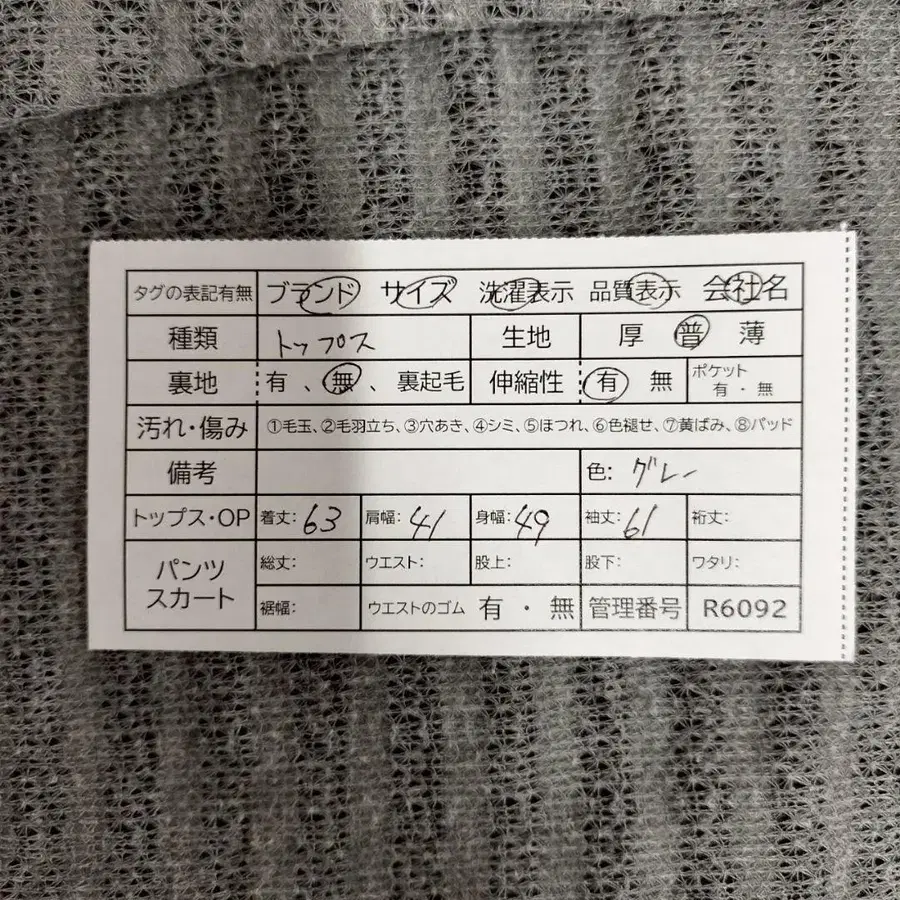 タグの表記有無 ブランド サイズ 洗濯表示 品質表示 会社名
種類 トップス 生地 厚 普 薄
裏地 有 、 無 、 裏起毛 伸縮性 有 無 ポケット 有 ・ 無
汚れ・傷み ①毛玉、②毛羽立ち、③穴あき、④シミ、⑤ほつれ、⑥色褪せ、⑦黄ばみ、⑧パッド
備考 色: グレー
トップス・OP 着丈: 63 肩幅: 41 身幅: 49 袖丈: 61 裄丈:
パンツ スカート 総丈: ウエスト: 股上: 股下: ワタリ:
裾幅: ウエストのゴム 有 ・ 無 管理番号 R6092